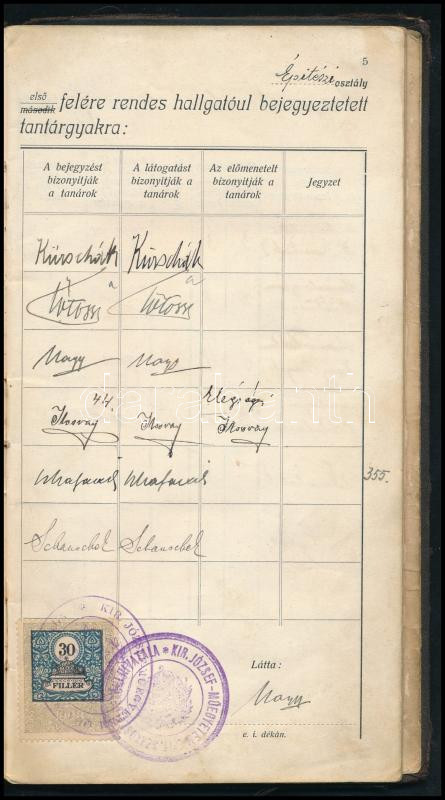 5
Építészi osztály
első
második felére rendes hallgatóul bejegyeztetett
tantárgyakra:
A bejegyzést bizonyitják a tanárok
A látogatást bizonyitják a tanárok
Az előmenetelt bizonyitják a tanárok
Jegyzet
Kürschák Kürschák
Nagy Nagy
44. Elégséges
Ilosvay Ilosvay Ilosvay
355.
30
FILLÉR
KIR. JÓZSEF-MŰEGYETEM
Látta:
Nagy
e. i. dékán.
darabanth